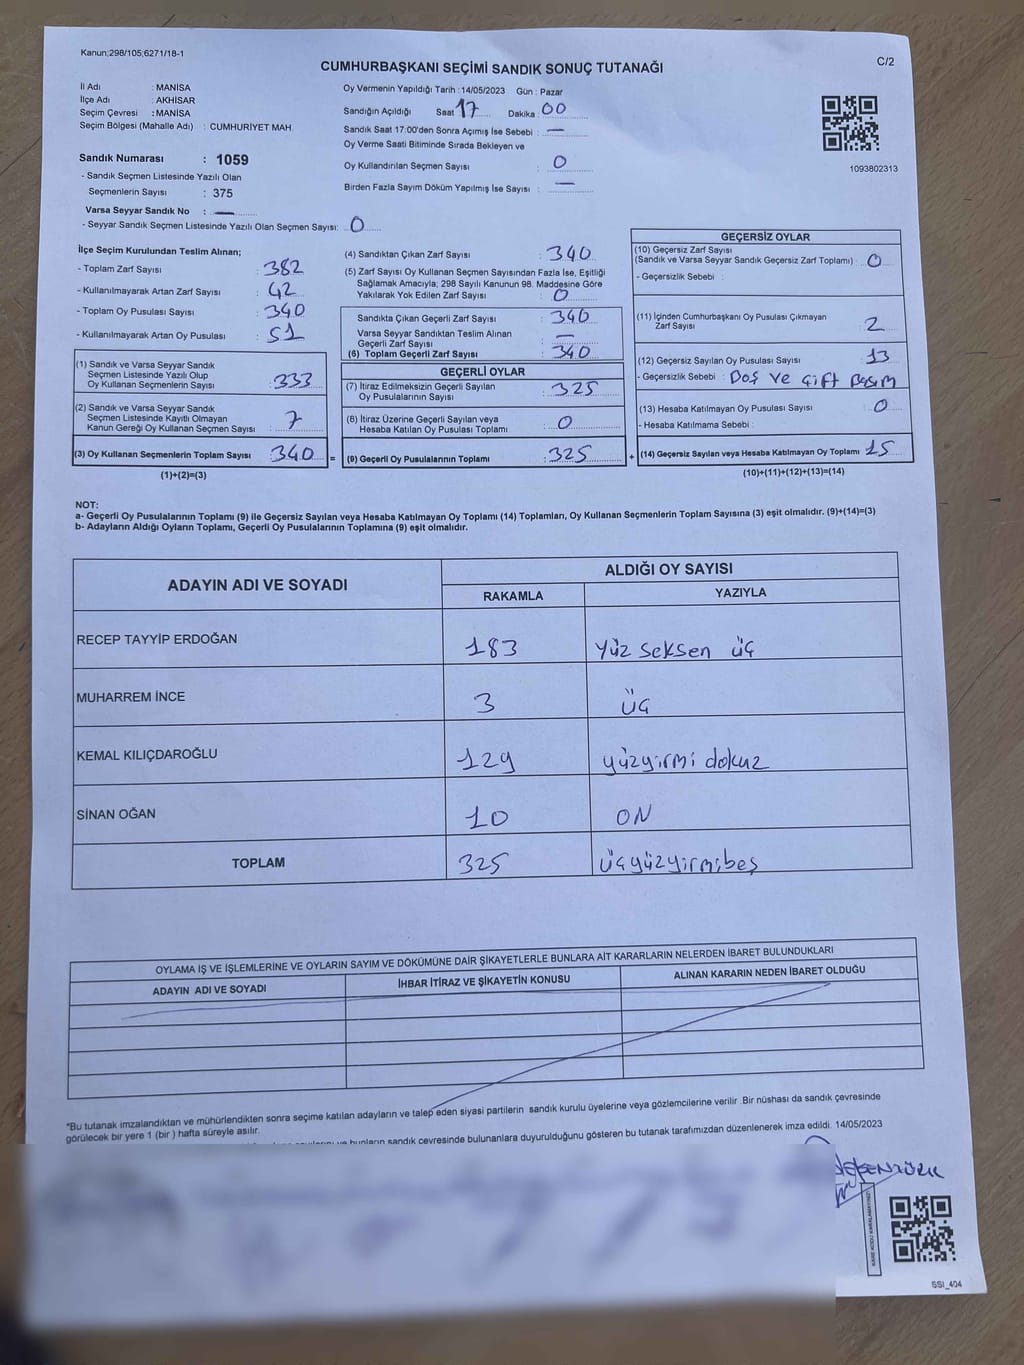 Kanun;298/105;6271/18-1
C/2
CUMHURBAŞKANI SEÇİMİ SANDIK SONUÇ TUTANAĞI
İl Adı : MANİSA
İlçe Adı : AKHİSAR
Seçim Çevresi : MANİSA
Seçim Bölgesi (Mahalle Adı) : CUMHURİYET MAH.
Sandık Numarası : 1059
- Sandık Seçmen Listesinde Yazılı Olan
Seçmenlerin Sayısı : 375
Varsa Seyyar Sandık No : —
- Seyyar Sandık Seçmen Listesinde Yazılı Olan Seçmen Sayısı: 0
Oy Vermenin Yapıldığı Tarih : 14/05/2023 Gün : Pazar
Sandığın Açıldığı Saat 17 Dakika 00
Sandık Saat 17:00'den Sonra Açımış İse Sebebi : —
Oy Verme Saati Bitiminde Sırada Bekleyen ve
Oy Kullandırılan Seçmen Sayısı : 0
Birden Fazla Sayım Döküm Yapılmış İse Sayısı : —
1093802313
İlçe Seçim Kurulundan Teslim Alınan;
- Toplam Zarf Sayısı : 382
- Kullanılmayarak Artan Zarf Sayısı : 42
- Toplam Oy Pusulası Sayısı : 340
- Kullanılmayarak Artan Oy Pusulası : 51
(1) Sandık ve Varsa Seyyar Sandık
Seçmen Listesinde Yazılı Olup
Oy Kullanan Seçmenlerin Sayısı : 333
(2) Sandık ve Varsa Seyyar Sandık
Seçmen Listesinde Kayıtlı Olmayan
Kanun Gereği Oy Kullanan Seçmen Sayısı : 7
(3) Oy Kullanan Seçmenlerin Toplam Sayısı : 340 =
(1)+(2)=(3)
(4) Sandıktan Çıkan Zarf Sayısı : 340
(5) Zarf Sayısı Oy Kullanan Seçmen Sayısından Fazla İse, Eşitliği
Sağlamak Amacıyla; 298 Sayılı Kanunun 98. Maddesine Göre
Yakılarak Yok Edilen Zarf Sayısı : 0
Sandıkta Çıkan Geçerli Zarf Sayısı : 340
Varsa Seyyar Sandıktan Teslim Alınan
Geçerli Zarf Sayısı : —
(6) Toplam Geçerli Zarf Sayısı : 340
GEÇERLİ OYLAR
(7) İtiraz Edilmeksizin Geçerli Sayılan
Oy Pusulalarının Sayısı : 325
(8) İtiraz Üzerine Geçerli Sayılan veya
Hesaba Katılan Oy Pusulası Toplamı : 0
(9) Geçerli Oy Pusulalarının Toplamı : 325 +
GEÇERSİZ OYLAR
(10) Geçersiz Zarf Sayısı
(Sandık ve Varsa Seyyar Sandık Geçersiz Zarf Toplamı) : 0
- Geçersizlik Sebebi :
(11) İçinden Cumhurbaşkanı Oy Pusulası Çıkmayan
Zarf Sayısı : 2
(12) Geçersiz Sayılan Oy Pusulası Sayısı : 13
- Geçersizlik Sebebi : Boş ve çift Basım
(13) Hesaba Katılmayan Oy Pusulası Sayısı : 0
- Hesaba Katılmama Sebebi :
(14) Geçersiz Sayılan veya Hesaba Katılmayan Oy Toplamı 15
(10)+(11)+(12)+(13)=(14)
NOT:
a- Geçerli Oy Pusulalarının Toplamı (9) ile Geçersiz Sayılan veya Hesaba Katılmayan Oy Toplamı (14) Toplamları, Oy Kullanan Seçmenlerin Toplam Sayısına (3) eşit olmalıdır. (9)+(14)=(3)
b- Adayların Aldığı Oyların Toplamı, Geçerli Oy Pusulalarının Toplamına (9) eşit olmalıdır.
ADAYIN ADI VE SOYADI
ALDIĞI OY SAYISI
RAKAMLA YAZIYLA
RECEP TAYYİP ERDOĞAN 183 Yüz seksen üç
MUHARREM İNCE 3 üç
KEMAL KILIÇDAROĞLU 129 yüzyirmi dokuz
SİNAN OĞAN 10 ON
TOPLAM 325 üçyüzyirmibeş
OYLAMA İŞ VE İŞLEMLERİNE VE OYLARIN SAYIM VE DÖKÜMÜNE DAİR ŞİKAYETLERLE BUNLARA AİT KARARLARIN NELERDEN İBARET BULUNDUKLARI
ADAYIN ADI VE SOYADI İHBAR İTİRAZ VE ŞİKAYETİN KONUSU ALINAN KARARIN NEDEN İBARET OLDUĞU
*Bu tutanak imzalandıktan ve mühürlendikten sonra seçime katılan adayların ve talep eden siyasi partilerin sandık kurulu üyelerine veya gözlemcilerine verilir. Bir nüshası da sandık çevresinde
görülecek bir yere 1 (bir) hafta süreyle asılır.
bunların sandık çevresinde bulunanlara duyurulduğunu gösteren bu tutanak tarafımızdan düzenlenerek imza edildi. 14/05/2023
SSİ_404